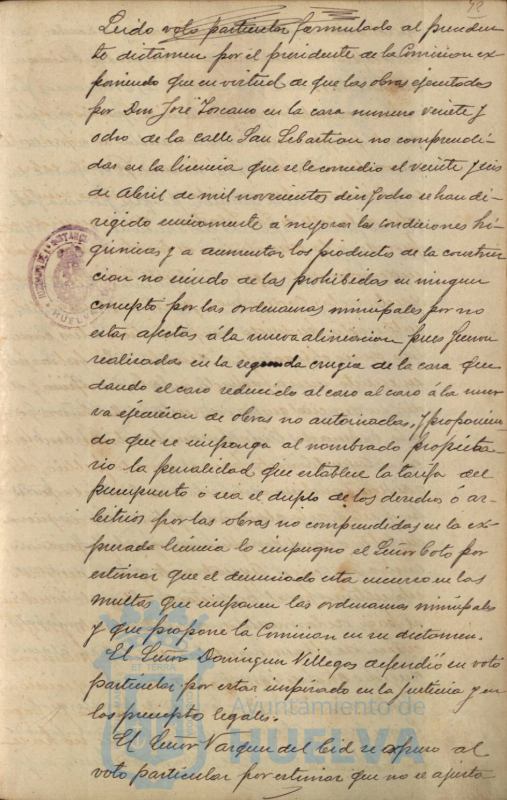 12
Leido voto particular formulado al preceden-
te dictamen por el presidente de la Comision ex-
poniendo que en virtud de que las obras ejecutadas
por Don José Toscano en la casa numero veinte y
ocho de la calle San Sebastian no comprendi-
das en la licencia que se le concedio el veinte y seis
de Abril de mil novecientos diez y ocho se han di-
rigido unicamente á mejorar las condiciones hi-
giénicas y a aumentar los productos de la construc-
cion no siendo de las prohibidas en ningun
concepto por las ordenanzas municipales por no
estar afectas á la nueva alineacion pues fueron
realizadas en la segunda crugia de la casa que-
dando el caso reducido al caso al caso á la nue-
va ejecucion de obras no autorizadas, y proponien-
do que se imponga al nombrado propieta-
rio la penalidad que establece la tarifa del
presupuesto ó sea el duplo de los derechos ó ar-
bitrios por las obras no comprendidas en la ex-
presada licencia lo impugno el Señor Coto por
estimar que el denunciado esta incurso en las
multas que imponen las ordenanzas municipales
y que propone la Comision en su dictamen.
El Señor Dominguez Villegas defendió en voto
particular por estar inspirado en la justicia y en
los preceptos legales.
El Señor Vazquez del Cid se opuso al
voto particular por estimar que no se ajusta
HUELVA
ET TERRA
Ayuntamiento de
HUELVA